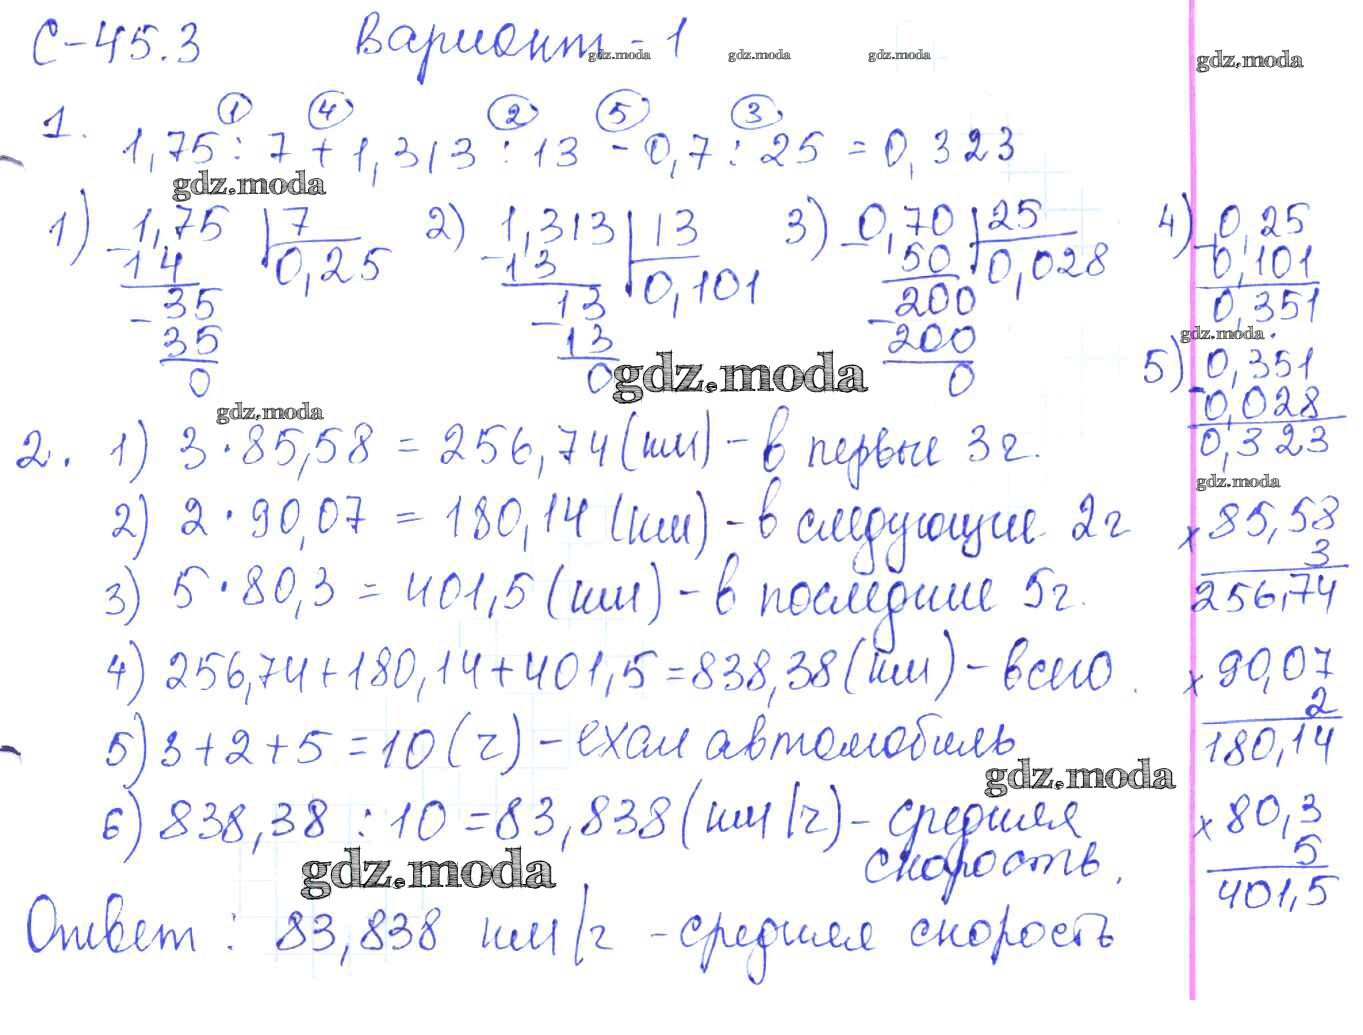 С-45.3 Вариант-1
gdz.moda gdz.moda gdz.moda gdz.moda
① ④ ② ⑤ ③
1. 1,75 : 7 + 1,313 : 13 - 0,7 : 25 = 0,323
gdz.moda
1) 1,75 | 7 2) 1,313 | 13 3) 0,70 | 25 4) 0,25
- 14 0,25 - 13 0,101 - 50 0,028 - 0,101
35 13 200 0,351
- 35 - 13 - 200
0 0 0
gdz.moda
gdz.moda
5) 0,351
- 0,028
0,323
gdz.moda
2. 1) 3 · 85,58 = 256,74 (км) - в первые 3 ч.
gdz.moda
2) 2 · 90,07 = 180,14 (км) - в следующие 2 ч
× 85,58
3
256,74
3) 5 · 80,3 = 401,5 (км) - в последние 5 ч.
4) 256,74 + 180,14 + 401,5 = 838,38 (км) - всего.
× 90,07
2
180,14
5) 3 + 2 + 5 = 10 (ч) - ехал автомобиль
gdz.moda
6) 838,38 : 10 = 83,838 (км/ч) - средняя
скорость.
× 80,3
5
401,5
gdz.moda
Ответ: 83,838 км/ч - средняя скорость